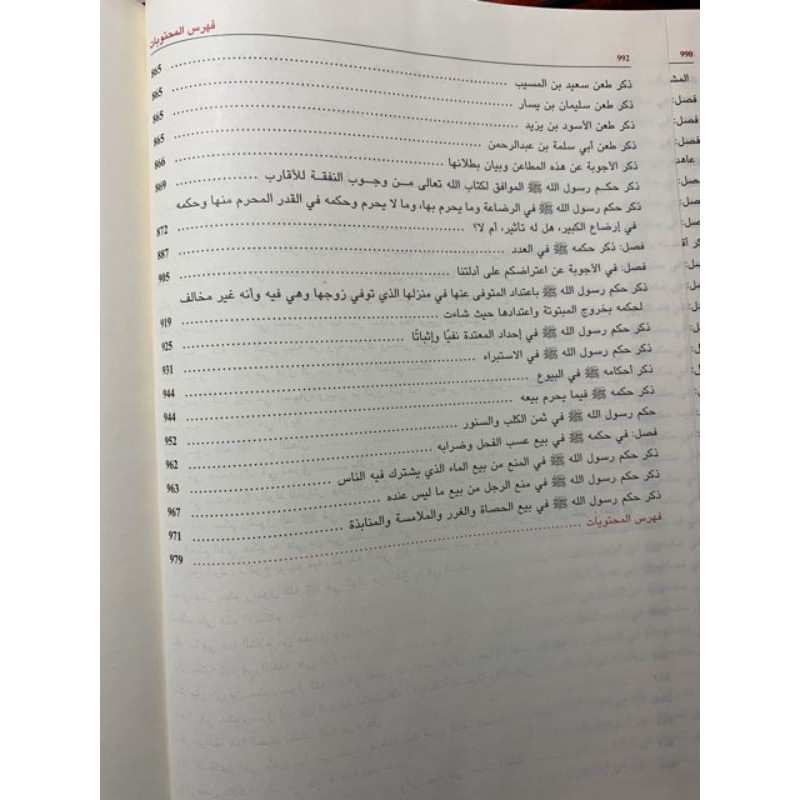 992
فهرس المحتويات
ذكر طعن سعيد بن المسيب ........ 865
ذكر طعن سليمان بن يسار ........ 865
ذكر طعن الأسود بن يزيد ........ 865
ذكر طعن أبي سلمة بن عبدالرحمن ........ 865
ذكر الأجوبة عن هذه المطاعن وبيان بطلانها ........ 866
ذكر حكم رسول الله ﷺ الموافق لكتاب الله تعالى من وجوب النفقة للأقارب ........ 869
ذكر حكم رسول الله ﷺ في الرضاعة وما يحرم بها، وما لا يحرم وحكمه في القدر المحرم منها وحكمه
في إرضاع الكبير، هل له تأثير، أم لا؟ ........ 872
فصل: ذكر حكمه ﷺ في العدد ........ 887
فصل: في الأجوبة عن اعتراضكم على أدلتنا ........ 905
ذكر حكم رسول الله ﷺ باعتداد المتوفى عنها في منزلها الذي توفي زوجها وهي فيه وأنه غير مخالف
لحكمه بخروج المبتوتة واعتدادها حيث شاءت ........ 919
ذكر حكم رسول الله ﷺ في إحداد المعتدة نفيًا وإثباتًا ........ 925
ذكر حكم رسول الله ﷺ في الاستبراء ........ 931
ذكر أحكامه ﷺ في البيوع ........ 944
ذكر حكمه ﷺ فيما يحرم بيعه ........ 944
حكم رسول الله ﷺ في ثمن الكلب والسنور ........ 952
فصل: في حكمه ﷺ في بيع عسب الفحل وضرابه ........ 962
ذكر حكم رسول الله ﷺ في المنع من بيع الماء الذي يشترك فيه الناس ........ 963
ذكر حكم رسول الله ﷺ في منع الرجل من بيع ما ليس عنده ........ 967
ذكر حكم رسول الله ﷺ في بيع الحصاة والغرر والملامسة والمنابذة ........ 971
فهرس المحتويات ........ 979
990
فصل:
فصل:
فصل:
عاهد